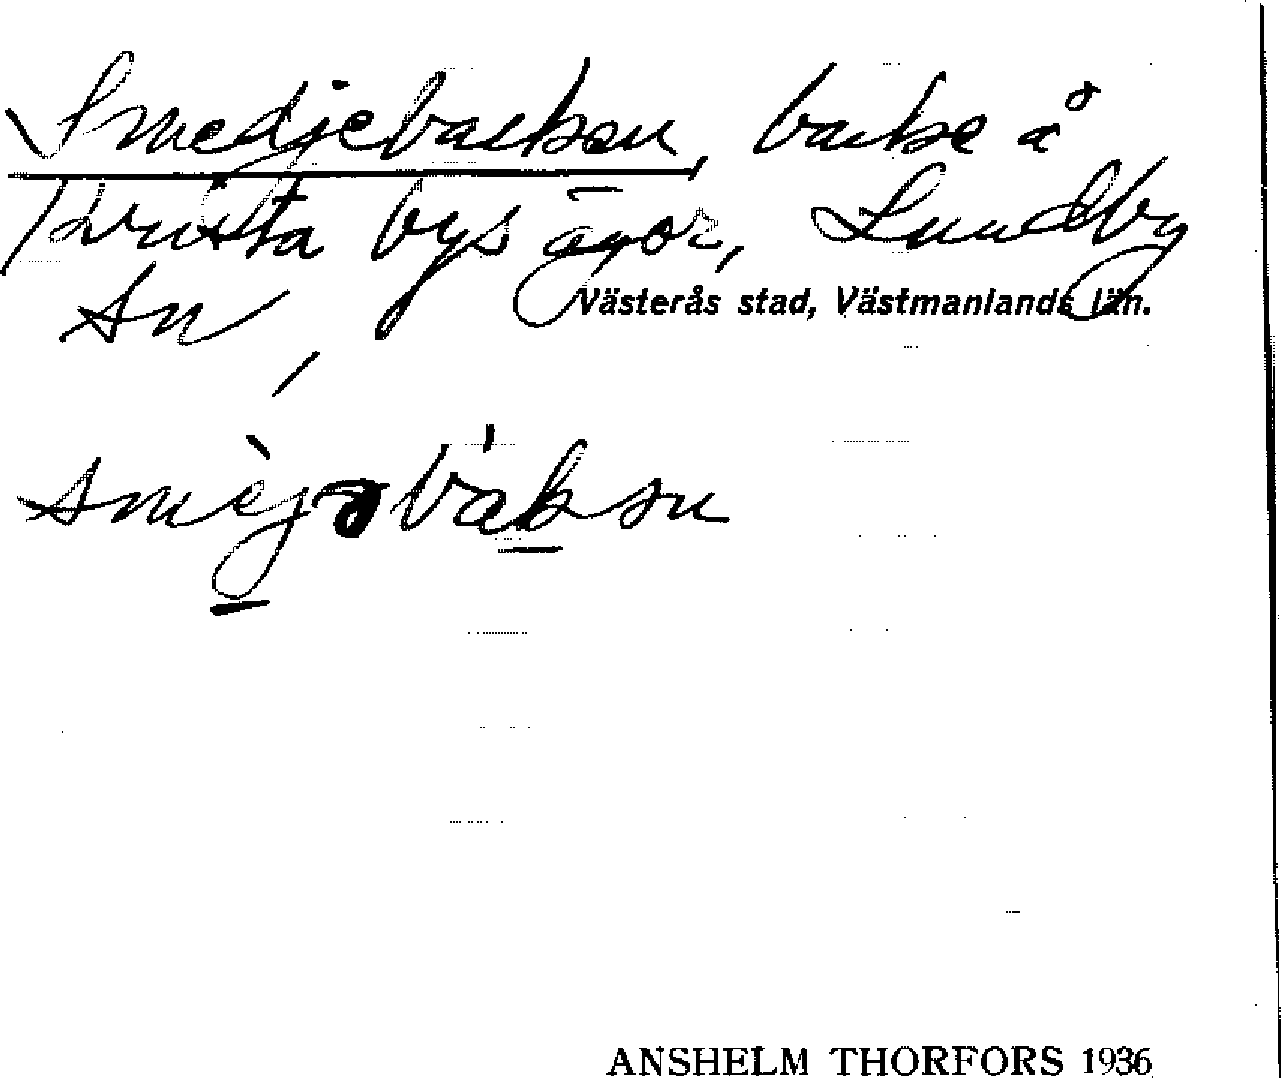 Smedjebacken, backe å
Brusta bys ägor, Lundby
sn,
Västerås stad, Västmanlands län.
smèjəbák ən
ANSHELM THORFORS 1936